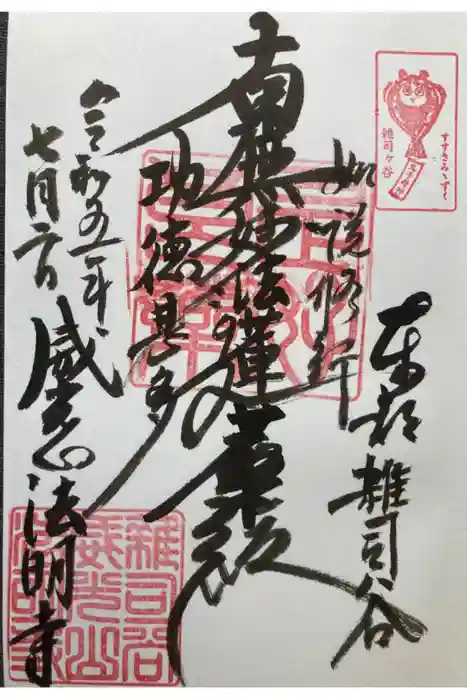 東都 雑司谷
如説修行
南無妙法蓮華経
功徳甚多
令和五年
七月六日
威光山 法明寺
雑司ヶ谷
すすきみゝずく
雑司谷
威光山
法明寺